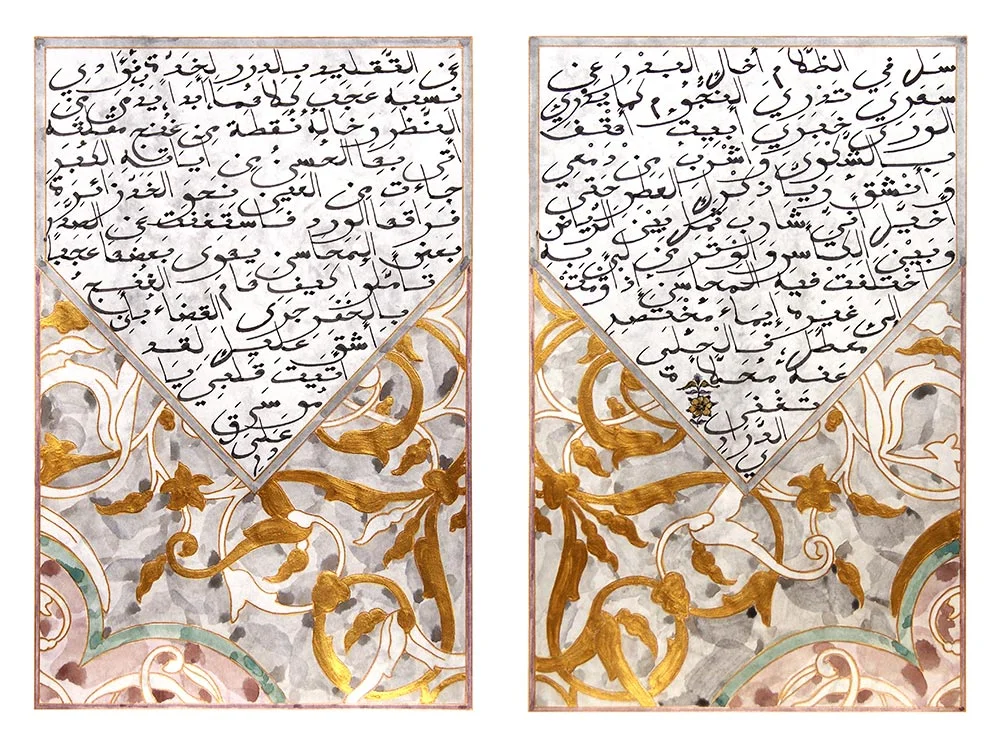 سل في الظلام أخاك البدر عن
سهري تدري النجوم كما يدري
الورى خبري أبيت أهتف
بالشكوى وأشرب من دمعي
وأنشق ريا ذكرك العطر حتى
أخيل أني شارب ثمل بين الرياض
وبين الكاس والوتر من لي به
اختلفت فيه المحاسن إذ أومت
إلى غيره إيماء مختصر
معطل فالحلى
منه محلاة
تغنى
الدرار
ي
عن التقليد بالدرر لخده بفؤادي
نسبة عجب كلاهما أبدا يدمى من
النظر وخاله نقطة من غنج مقلته
أتى بها الحسن من آياته الكبر
جاءت من العين نحو الخد زائرة
وراقها الورد فاستغنت عن الصدر
بعض المحاسن يهوى بعضها عجبا
تأملوا كيف هام الغنج
بالخفر جرى القضاء بأن
أشقى عليك لقد
أتيت قلبي يا
موسى
على